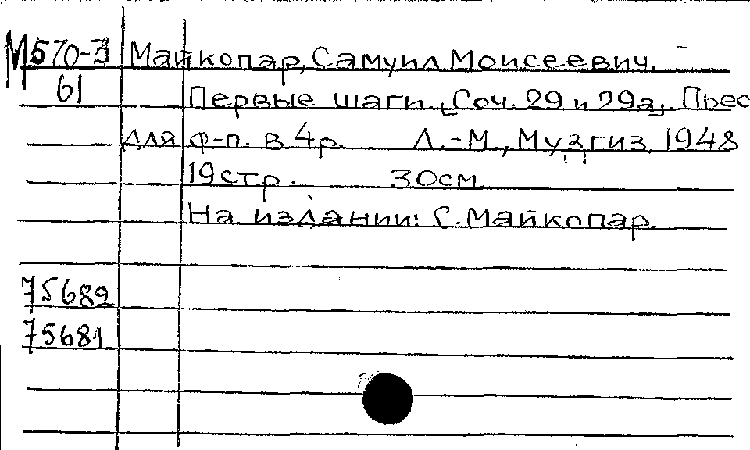 М570-3 Майкопар, Самуил Моисеевич.
61 Первые шаги. [Соч. 29 и 29а]. Прес
для ф-п. в 4 р. Л.-М., Музгиз, 1948
19 стр. 30 см
На издании: С. Майкопар.
75682
75681